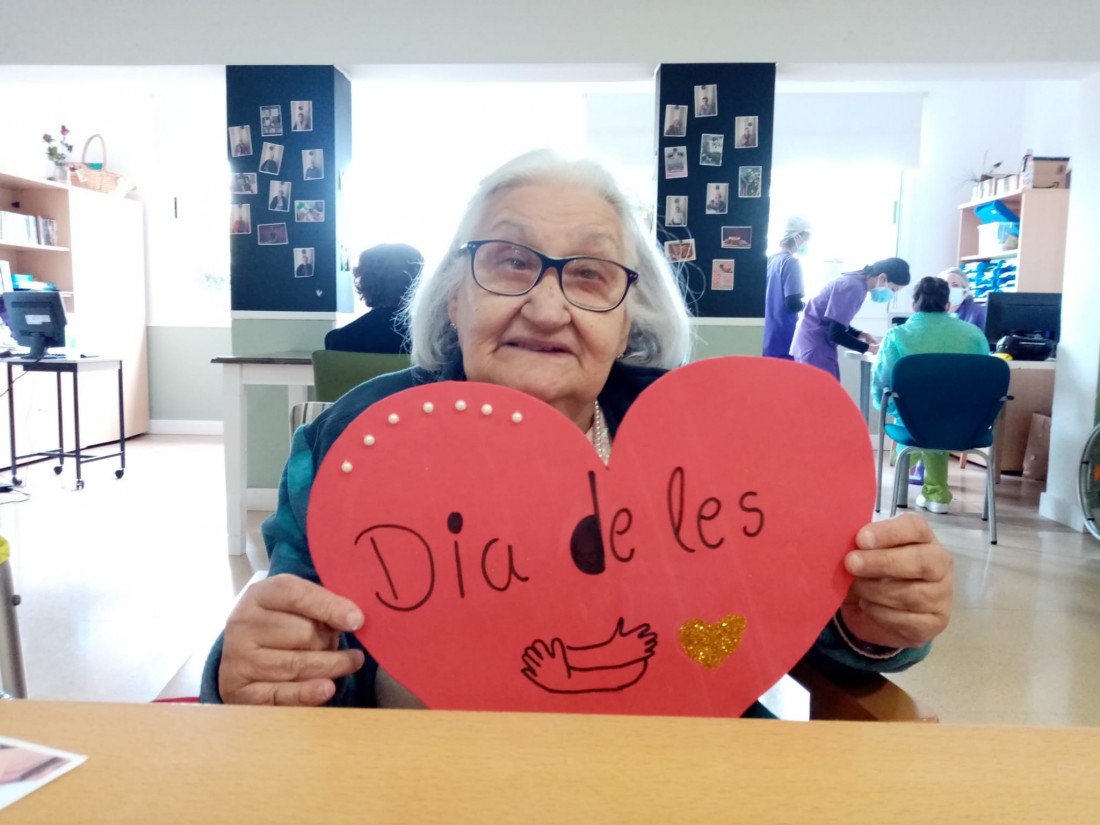 Dia de les